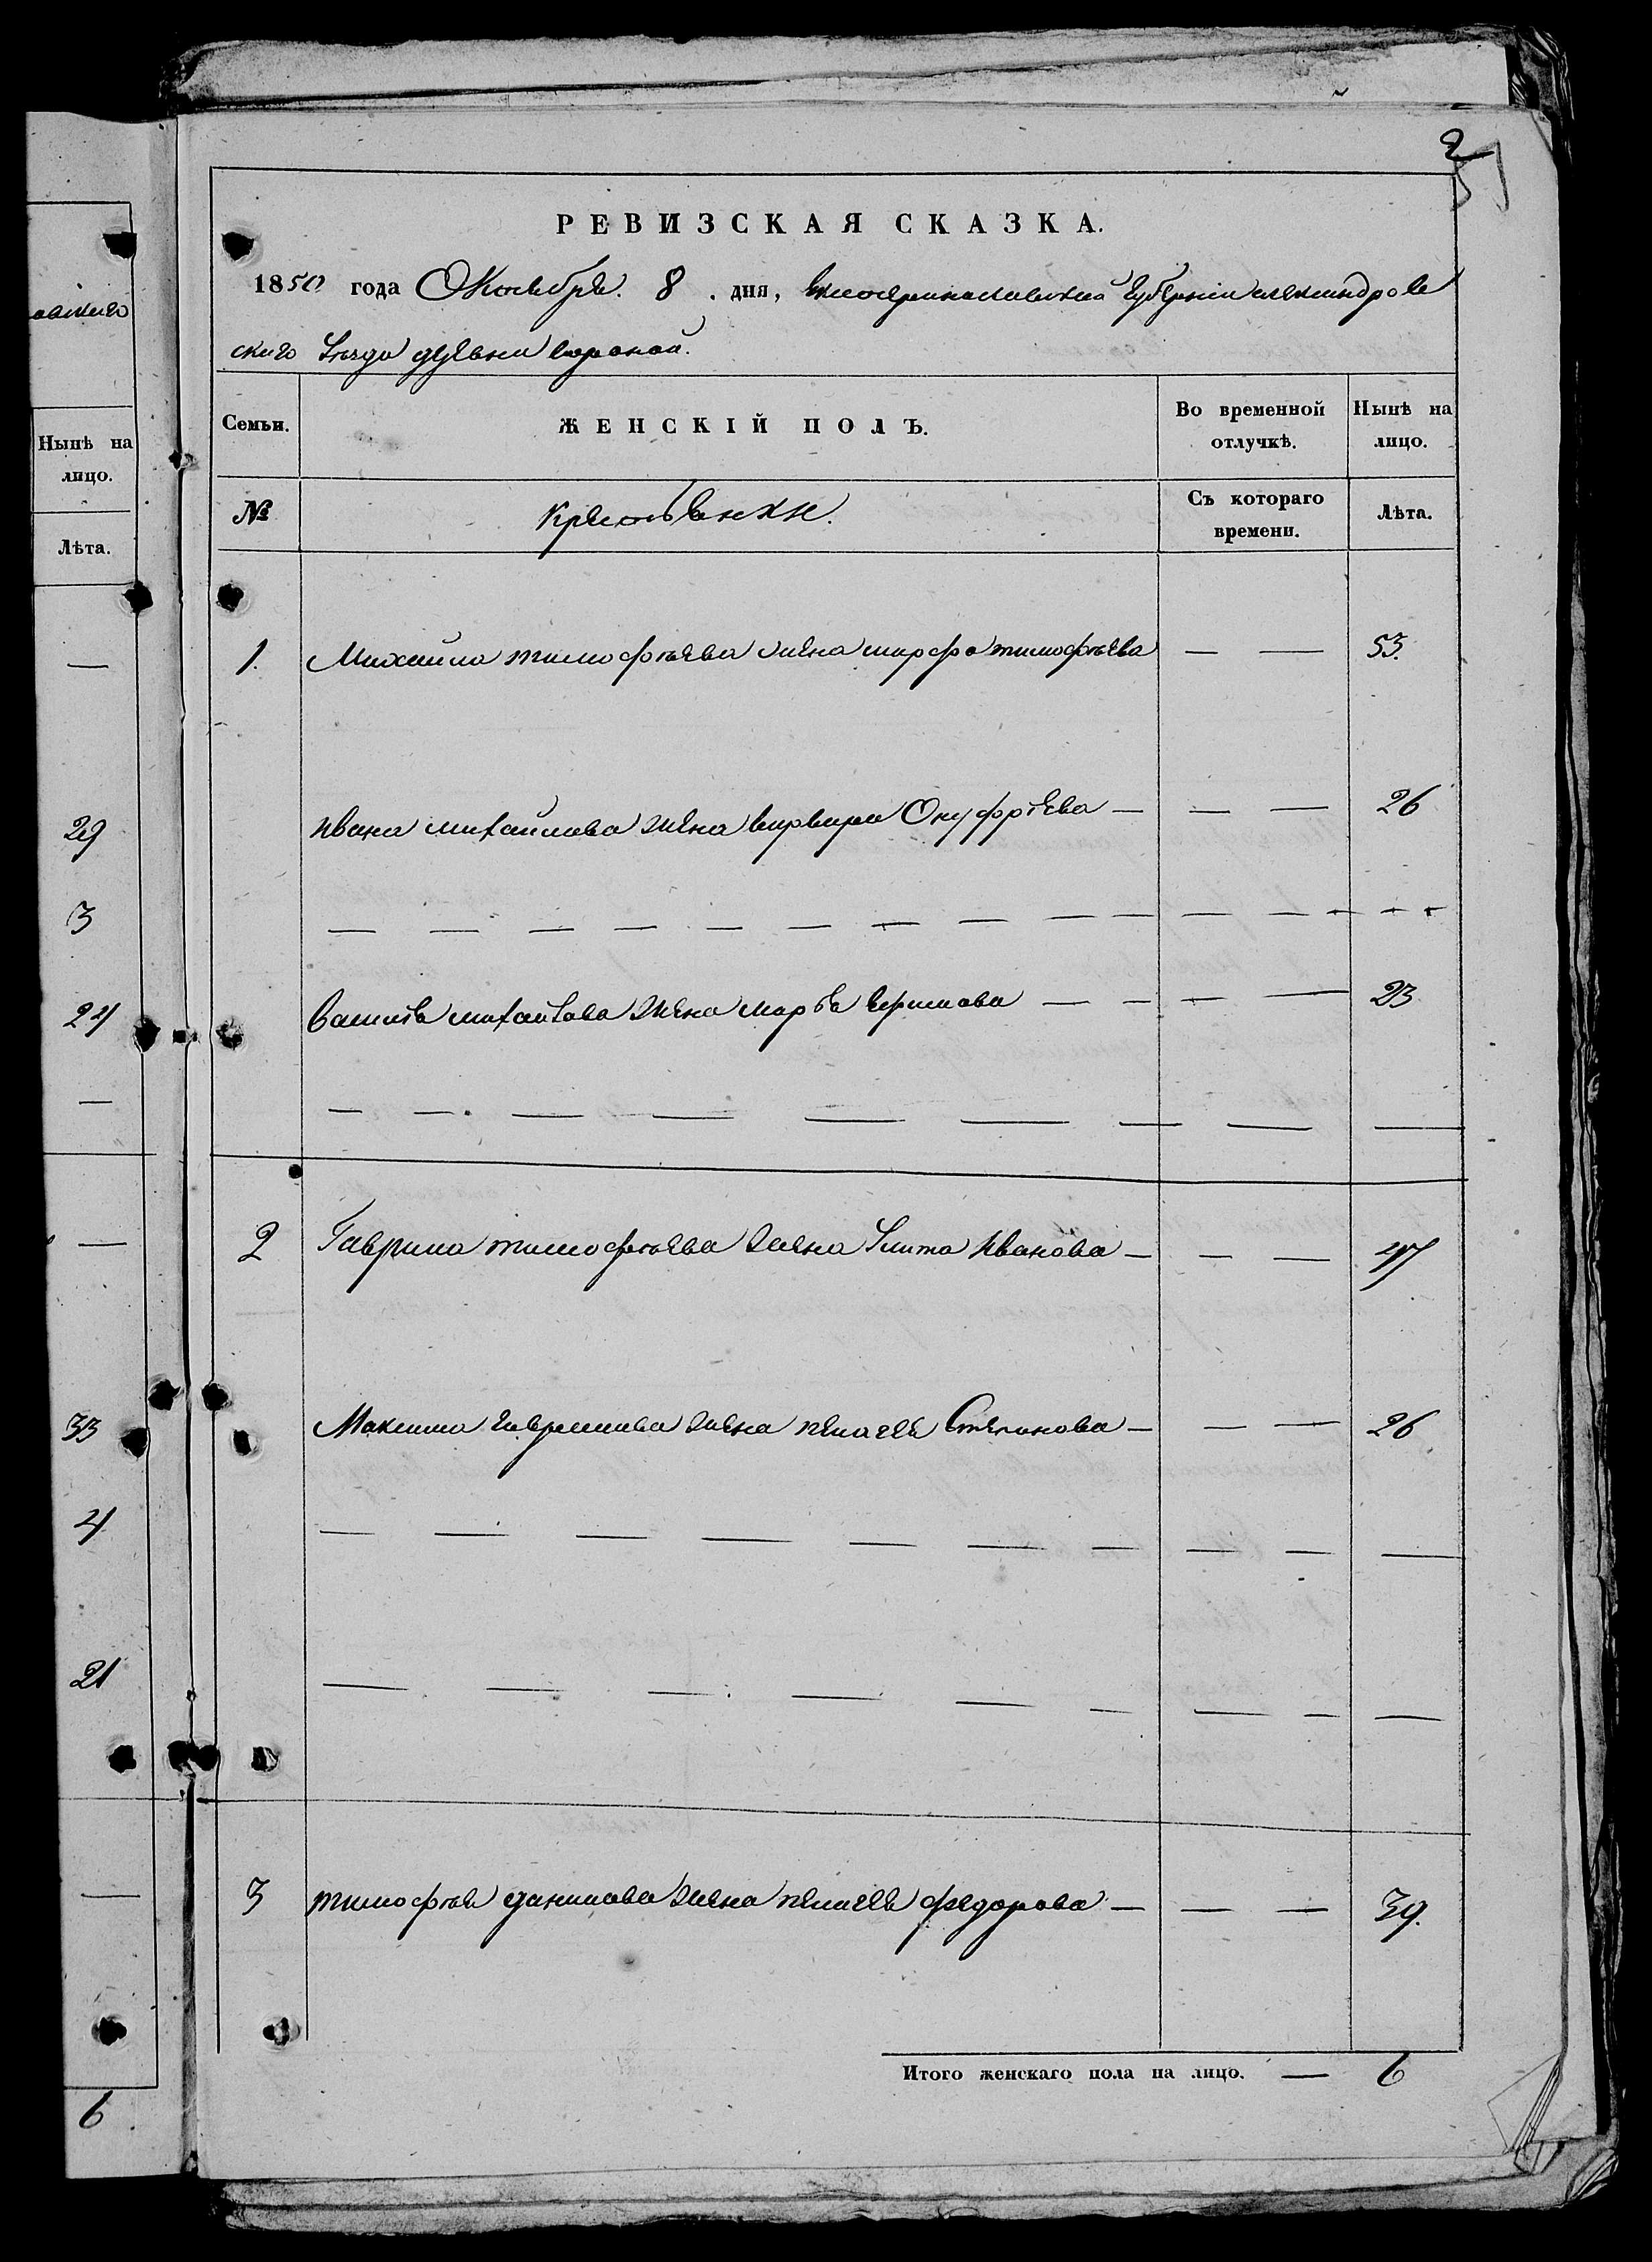 2
РЕВИЗСКАЯ СКАЗКА.
1850 года Октября. 8. дня, Екатеринославской Губернии Александров
ского Уезда деревни
Семьи.
ЖЕНСКІЙ ПОЛЪ.
Во временной отлучкѣ.
Нынѣ на лицо.
№
Крестьянки.
Съ котораго времени.
Лѣта.
1. Михаила тимофѣева жена марфа тимофѣева — — 53.
Ивана михайлова жена варвара Онуфрѣева — — — 26
Василѣя михайлова жена марѣя — — — — 23
2 Гаврила тимофѣева жена Улита Иванова — — — 47
Максима гаврилова жена пелагея Степанова — — — 26
3 тимофѣя данилова жена пелагея федорова — — — 39.
Итого женскаго пола на лицо. — 6
авскаго
Нынѣ на
лицо.
Лѣта.
—
29
3
24
—
—
33
4
21
—
6